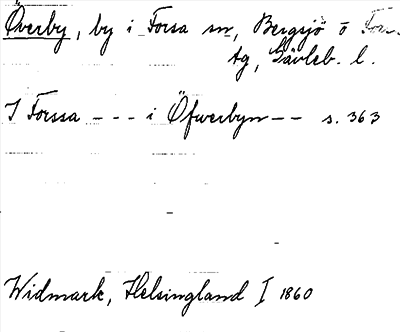 Överby, by i Forsa sn, Bergsjö o
tg, Gävleb. l.
I Forssa - - - i Öfwerbyn - - s. 363
Widmark, Helsingland I 1860